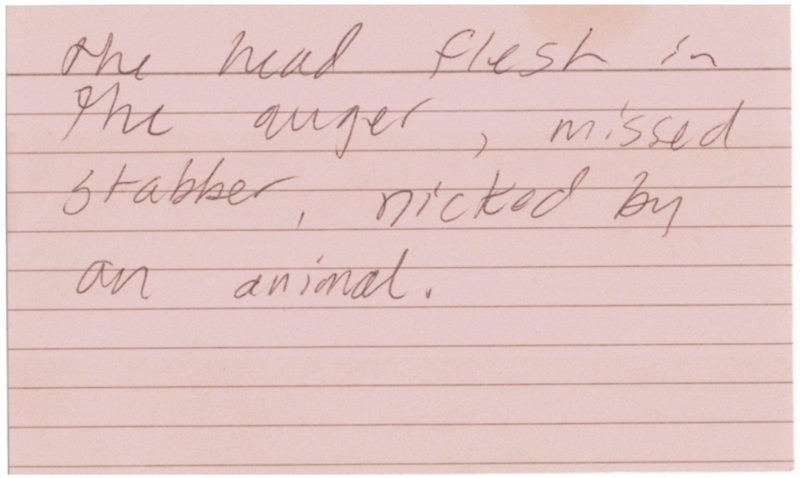 the head flesh in
the auger, missed
stabber, nicked by
an animal.